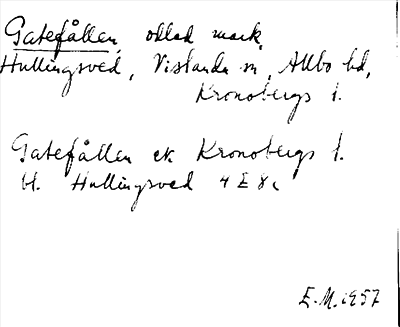 Gatefållen, odlad mark,
Hullingsved, Vislanda sn, Allbo hd,
Kronobergs l.
Gatefållen ek Kronobergs l.
bl. Hullingsved 4 E 8 c
E.M. 1957